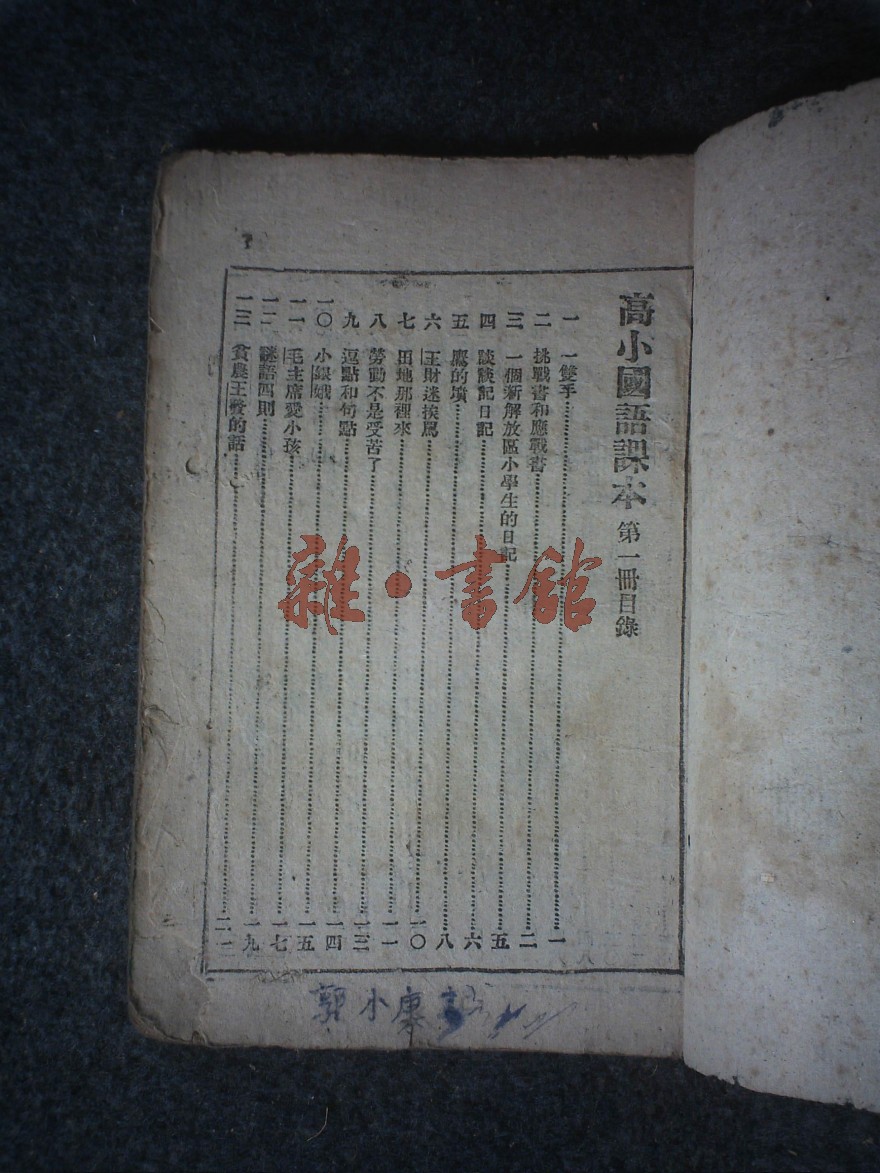 高小國語課本 第一冊目錄
一 一雙手 一
二 挑戰書和應戰書 二
三 一個新解放區小學生的日記 五
四 談談記日記 六
五 鷹的墳 八
六 王財迷挨罵 一〇
七 田地那裡來 一一
八 勞動不是受苦了 一三
九 逗點和句點 一四
一〇 小銀娥 一五
一一 毛主席愛小孩 一七
一二 謎語四則 一九
一三 貧農王發的話 二一
雜·書館
郭小康